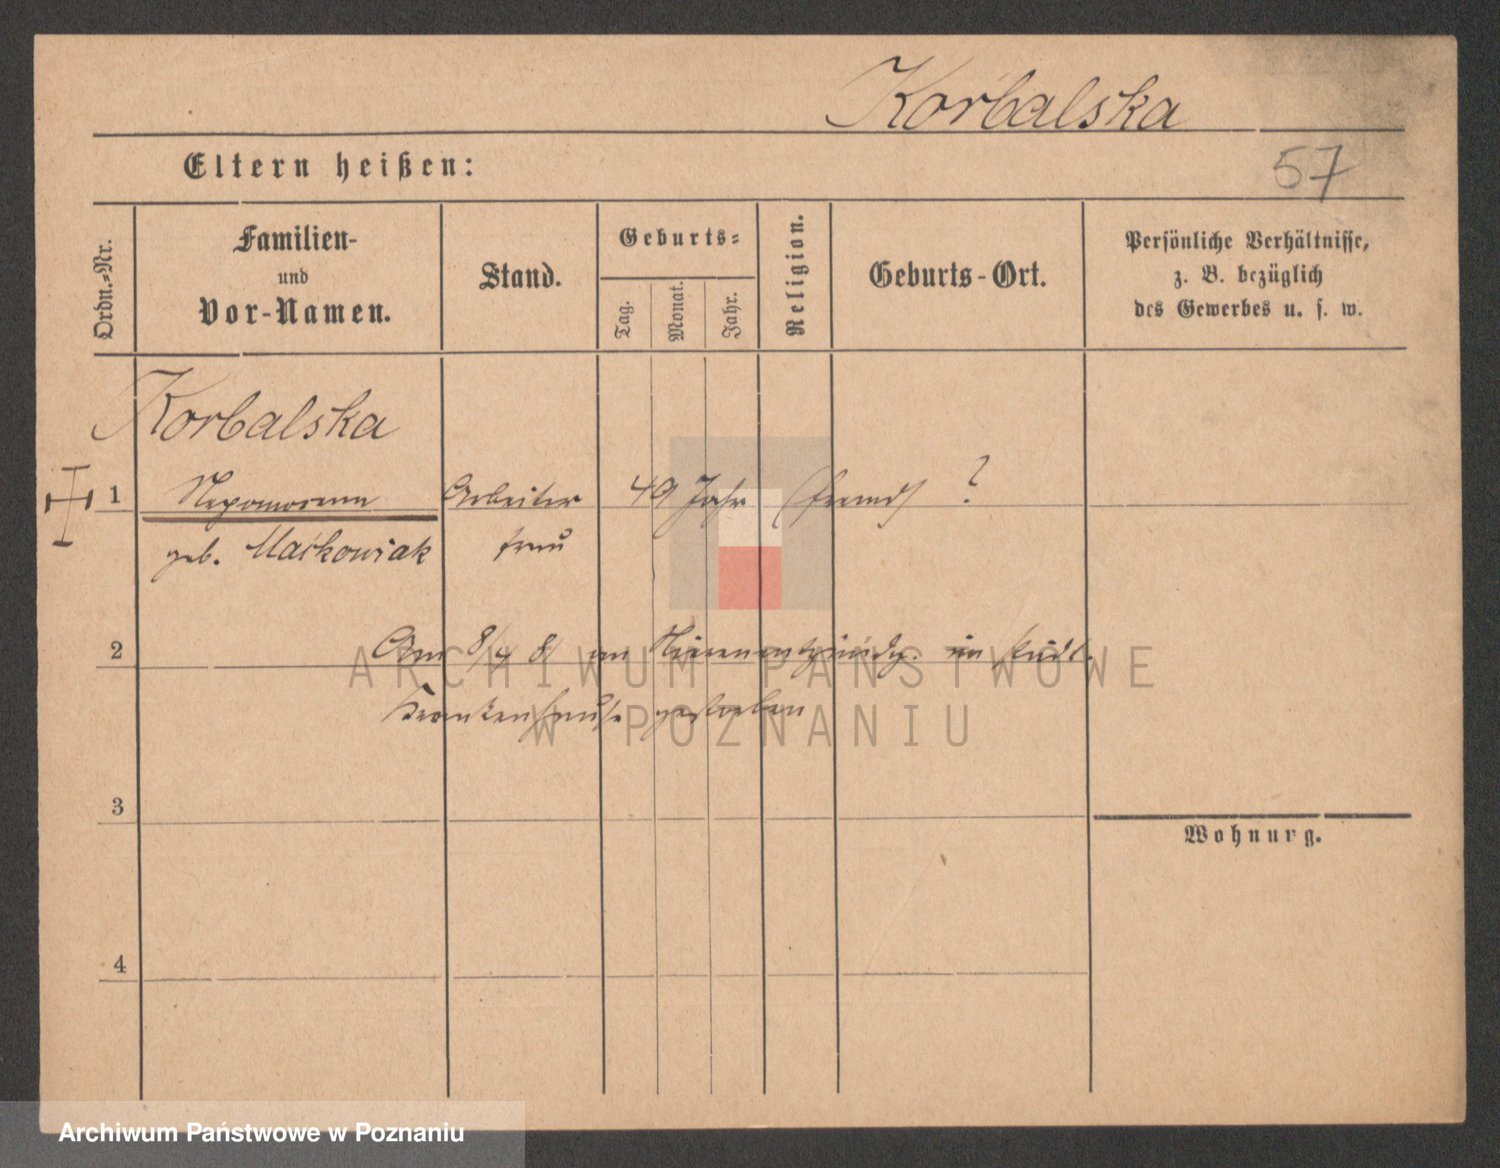 Korbalska
57
Eltern heißen:
Ordn.-Nr.
Familien-
und
Vor-Namen.
Stand.
Geburts-
Tag.
Monat.
Jahr.
Religion.
Geburts-Ort.
Persönliche Verhältnisse,
z. B. bezüglich
des Gewerbes u. s. w.
Korbalska
1 Nepomocena Arbeiter 49 Jahr (fremd) ?
geb. Maćkowiak frau
2 Am 8/4 81 an Nierenentzündg. im städt.
Krankenhause gestorben
3
Wohnung.
4
ARCHIWUM PAŃSTWOWE
W POZNANIU
Archiwum Państwowe w Poznaniu